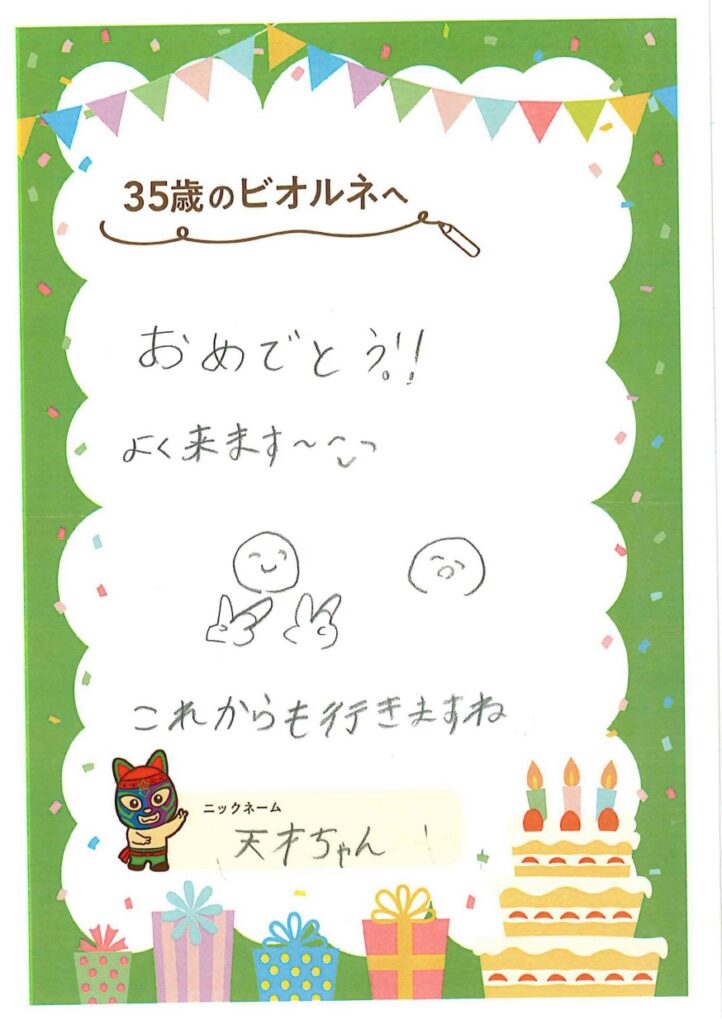 35歳のビオルネへ
おめでとう!!
よく来ます〜
これからも行きますね
ニックネーム
天才ちゃん